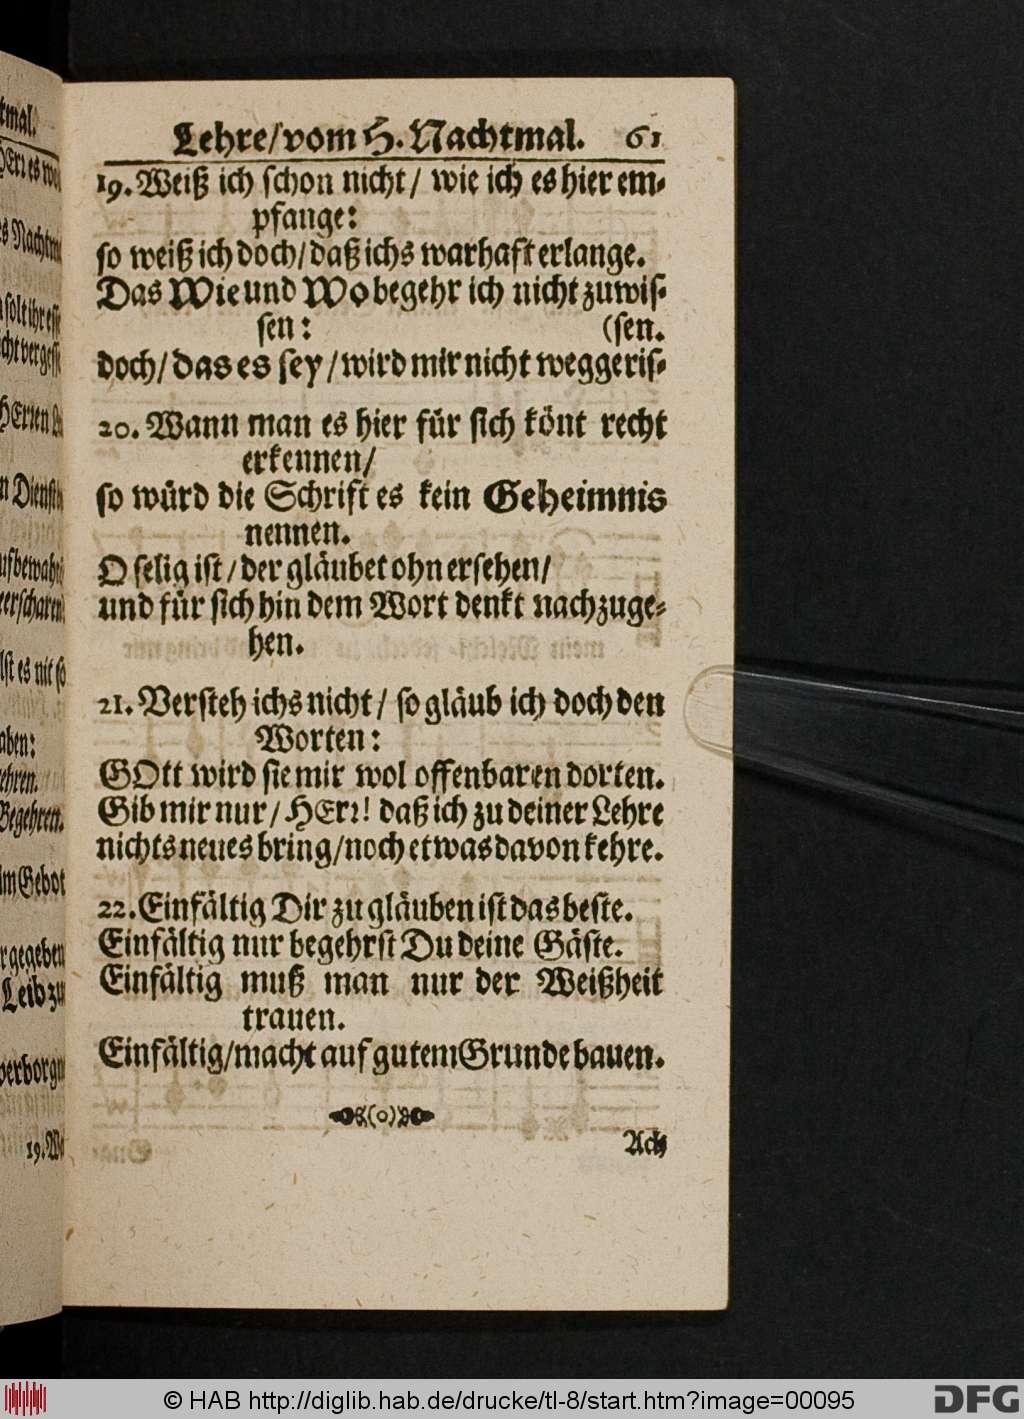 Lehre/vom H. Nachtmal. 61
19. Weiß ich schon nicht/ wie ich es hier em-
pfange:
so weiß ich doch/daß ichs warhaft erlange.
Das Wie und Wo begehr ich nicht zuwis-
sen: (sen.
doch/das es sey/wird mir nicht weggeris-
20. Wann man es hier für sich könt recht
erkennen/
so würd die Schrift es kein Geheimnis
nennen.
O selig ist/der gläubet ohn ersehen/
und für sich hin dem Wort denkt nachzuge-
hen.
21. Versteh ichs nicht/ so gläub ich doch den
Worten:
GOtt wird sie mir wol offenbaren dorten.
Gib mir nur/HErr! daß ich zu deiner Lehre
nichts neues bring/noch etwas davon kehre.
22. Einfältig Dir zu gläuben ist das beste.
Einfältig nur begehrst Du deine Gäste.
Einfältig muß man nur der Weißheit
trauen.
Einfältig/macht auf gutem Grunde bauen.
Ach
© HAB http://diglib.hab.de/drucke/tl-8/start.htm?image=00095
DFG